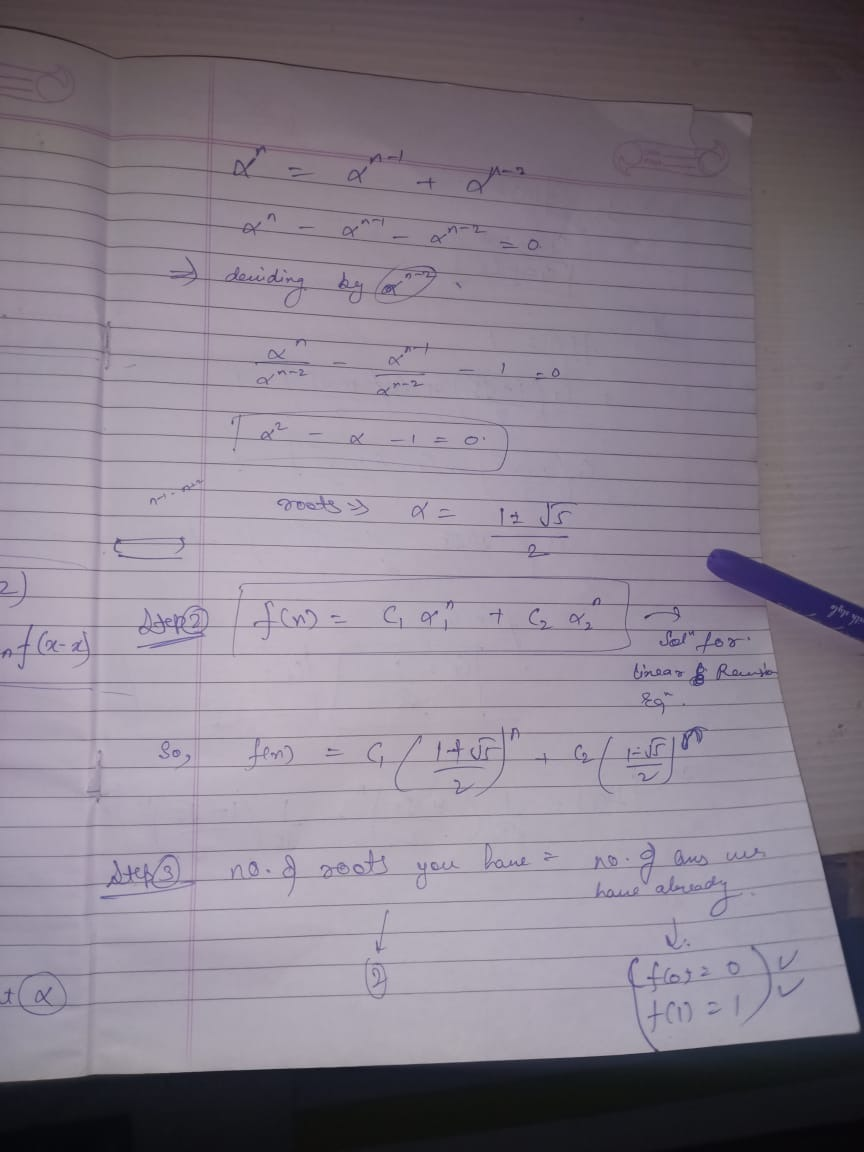 αⁿ = αⁿ⁻¹ + αⁿ⁻²
αⁿ - αⁿ⁻¹ - αⁿ⁻² = 0.
⇒ deviding by αⁿ⁻².
αⁿ/αⁿ⁻² - αⁿ⁻¹/αⁿ⁻² - 1 = 0
α² - α - 1 = 0.
roots ⇒ α = (1 ± √5)/2
2)
Step ② f(n) = C₁ α₁ⁿ + C₂ α₂ⁿ →
Solⁿ for
nf(x-x)
linear
Eqⁿ.
So, f(n) = C₁ ((1+√5)/2)ⁿ + C₂ ((1-√5)/2)ⁿ
Step ③ no. of roots you have = no. of ans we
have already.
↓ ↓
② f(0) = 0 ✓
t α f(1) = 1 ✓